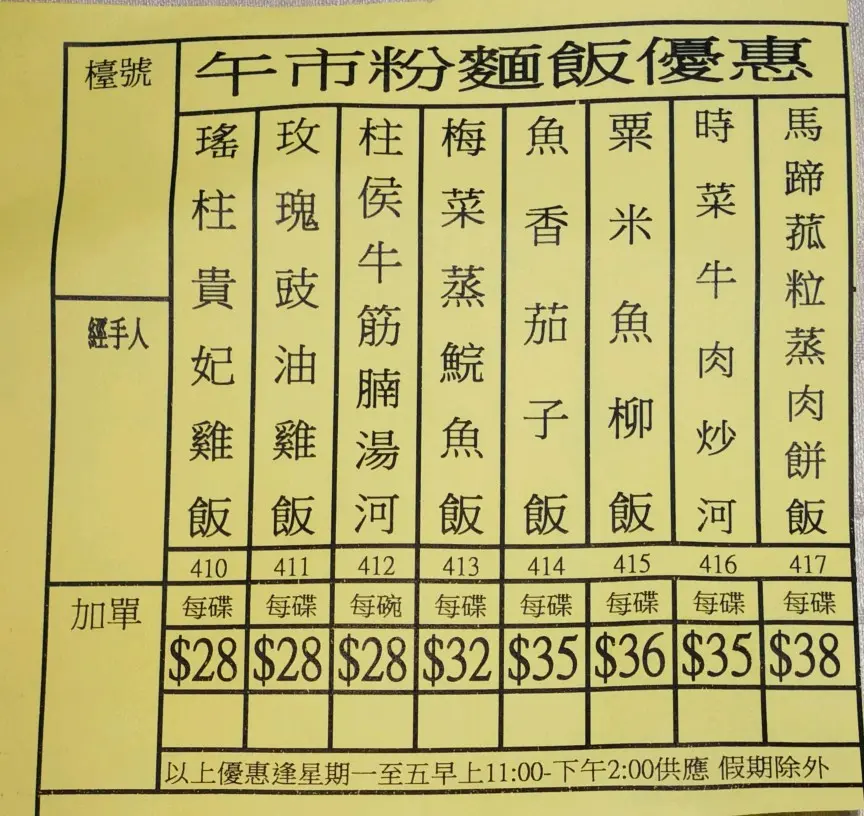 檯號
午市粉麵飯優惠
經手人
瑤柱貴妃雞飯
玫瑰豉油雞飯
柱侯牛筋腩湯河
梅菜蒸鯇魚飯
魚香茄子飯
粟米魚柳飯
時菜牛肉炒河
馬蹄菰粒蒸肉餅飯
410 411 412 413 414 415 416 417
加單
每碟 每碟 每碗 每碟 每碟 每碟 每碟 每碟
$28 $28 $28 $32 $35 $36 $35 $38
以上優惠逢星期一至五早上11:00-下午2:00供應 假期除外